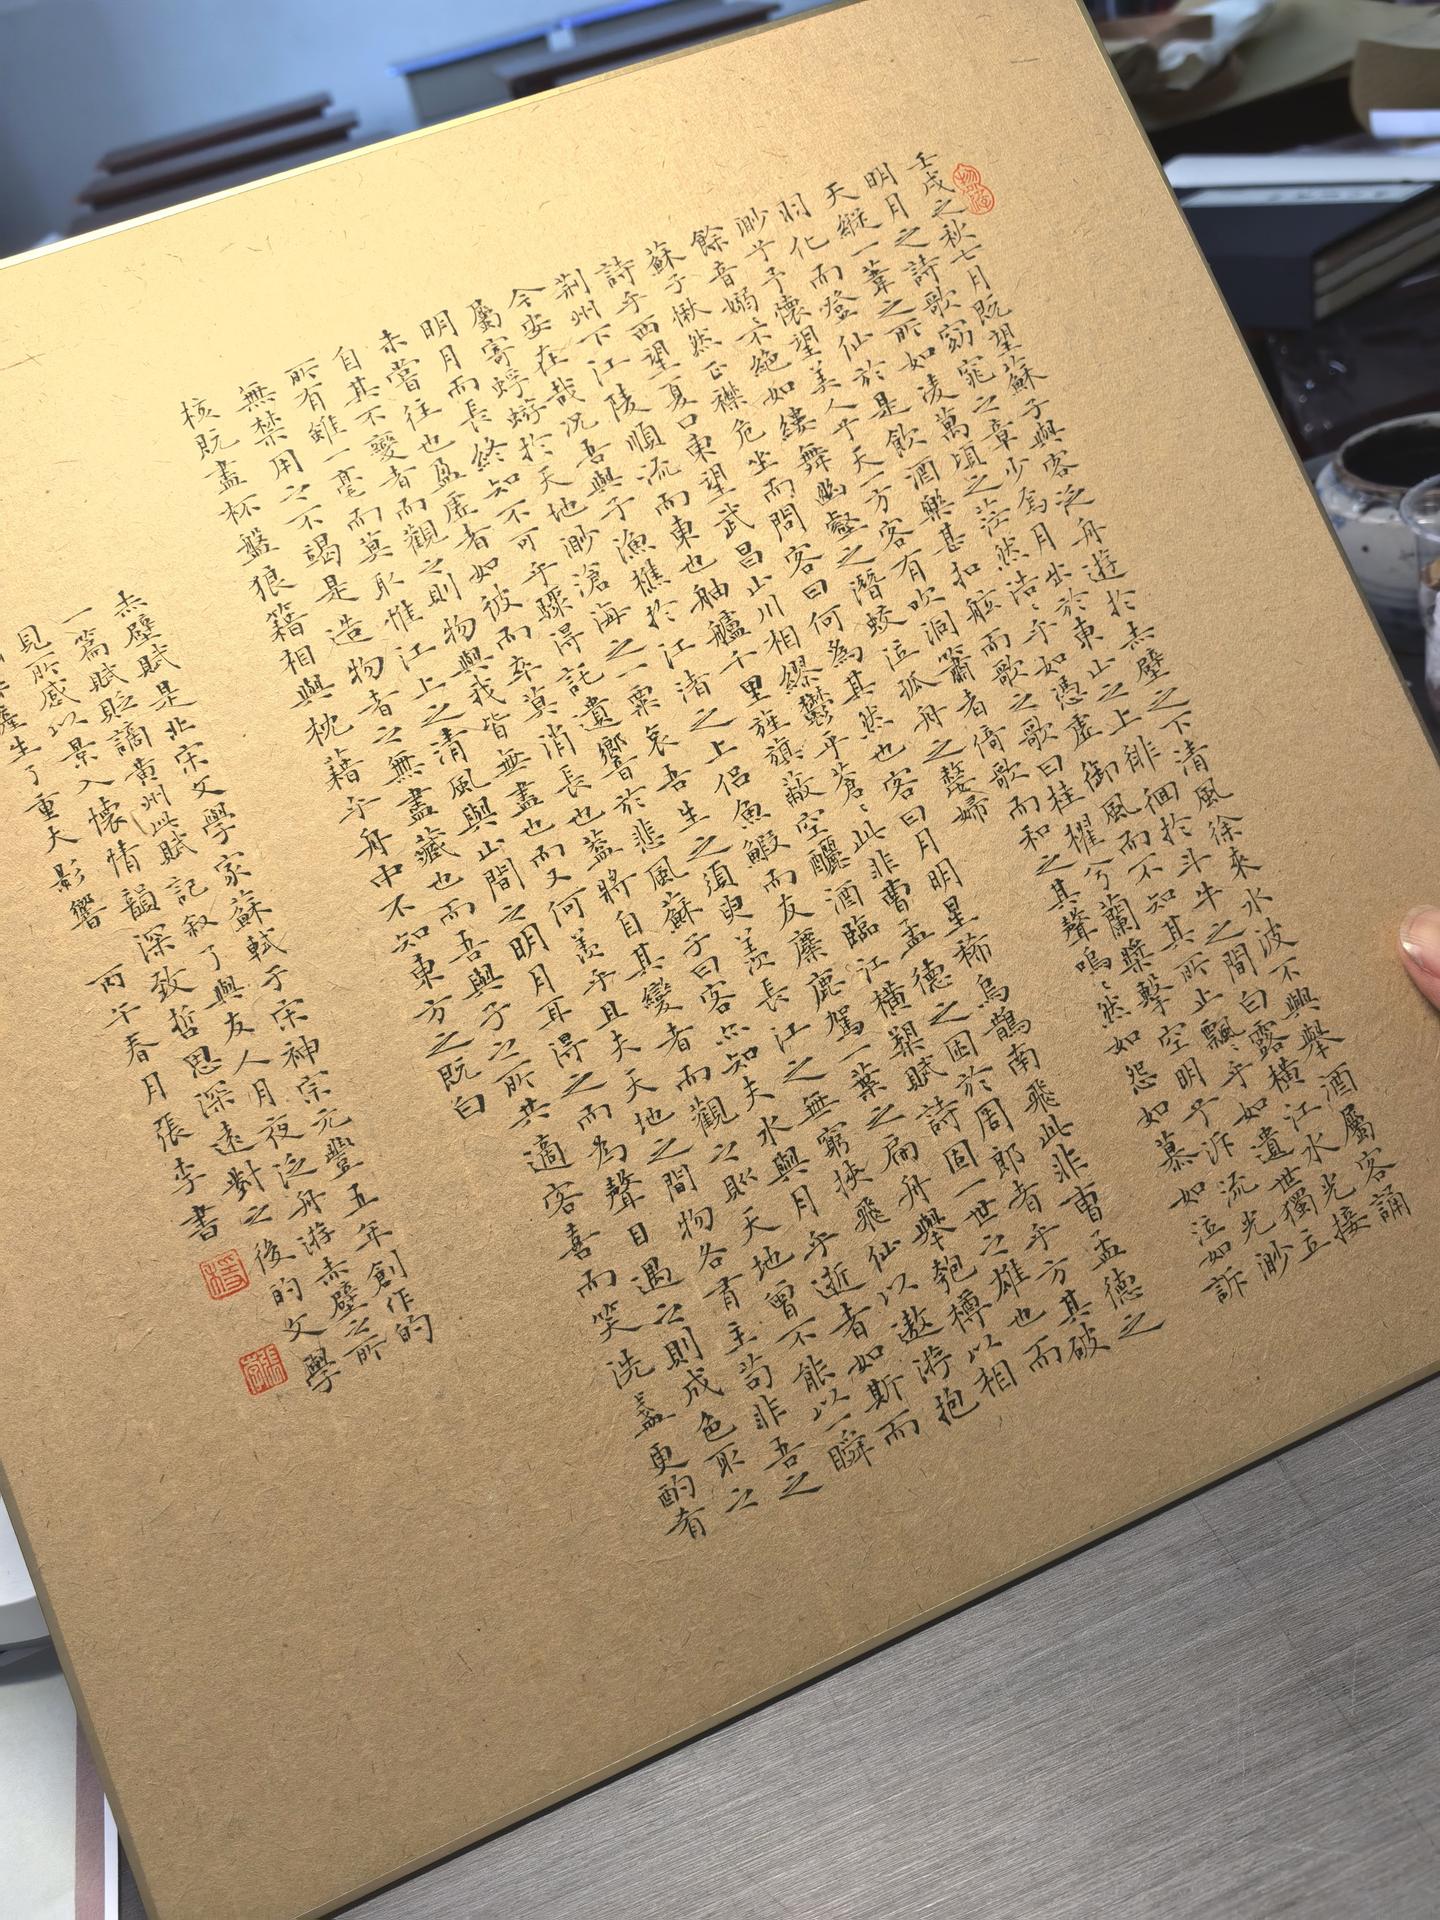 壬戌之秋七月既望蘇子與客泛舟遊於赤壁之下清風徐來水波不興舉酒屬客誦
明月之詩歌窈窕之章少焉月出於東山之上徘徊於斗牛之間白露橫江水光接
天縱一葦之所如凌萬頃之茫然浩〻乎如憑虛御風而不知其所止飄〻乎如遺世獨立
羽化而登仙於是飲酒樂甚扣舷而歌之歌曰桂櫂兮蘭槳擊空明兮泝流光渺
渺兮予懷望美人兮天一方客有吹洞簫者倚歌而和之其聲嗚〻然如怨如慕如泣如訴
餘音嫋〻不絕如縷舞幽壑之潛蛟泣孤舟之嫠婦
蘇子愀然正襟危坐而問客曰何為其然也客曰月明星稀烏鵲南飛此非曹孟德之
詩乎西望夏口東望武昌山川相繆鬱乎蒼〻此非曹孟德之困於周郎者乎方其破
荆州下江陵順流而東也舳艫千里旌旗蔽空釃酒臨江橫槊賦詩固一世之雄也而
今安在哉況吾與子漁樵於江渚之上侶魚鰕而友麋鹿駕一葉之扁舟舉匏樽以相
屬寄蜉蝣於天地渺滄海之一粟哀吾生之須臾羨長江之無窮挾飛仙以遨游抱
明月而長終知不可乎驟得託遺響於悲風蘇子曰客亦知夫水與月乎逝者如斯而
未嘗往也盈虛者如彼而卒莫消長也蓋將自其變者而觀之則天地曾不能以一瞬
自其不變者而觀之則物與我皆無盡也而又何羨乎且夫天地之間物各有主苟非吾之
所有雖一毫而莫取惟江上之清風與山間之明月耳得之而為聲目遇之則成色取之
無禁用之不竭是造物者之無盡藏也而吾與子之所共適客喜而笑洗盞更酌肴
核既盡杯盤狼籍相與枕藉乎舟中不知東方之既白
赤壁賦是北宋文學家蘇軾于宋神宗元豐五年創作的
一篇賦貶謫黃州此賦記叙了與友人月夜泛舟游赤壁之所
見所感以景入懷情韻深致哲思深遠對之後的文學
生了重大影響 丙午春月張李書